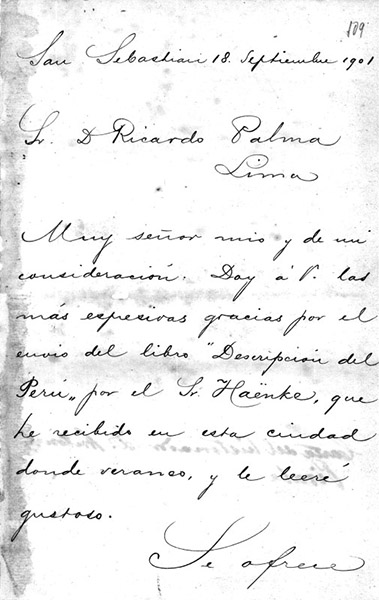 109
San Sebastian 18. Septiembre 1901
Sr. D Ricardo Palma
Lima
Muy señor mio y de mi
consideración. Doy á V. las
más espesivas gracias por el
envio del libro "Descripción del
Perú„ por el Sr. Haënke, que
he recibido en esta ciudad
donde veraneo, y le leeré
gustoso.
Se ofrece